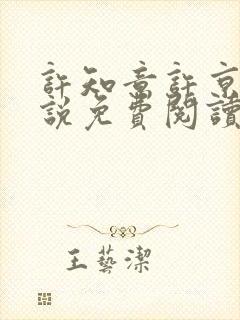 許知章許京
說免費閱讀
王藝潔